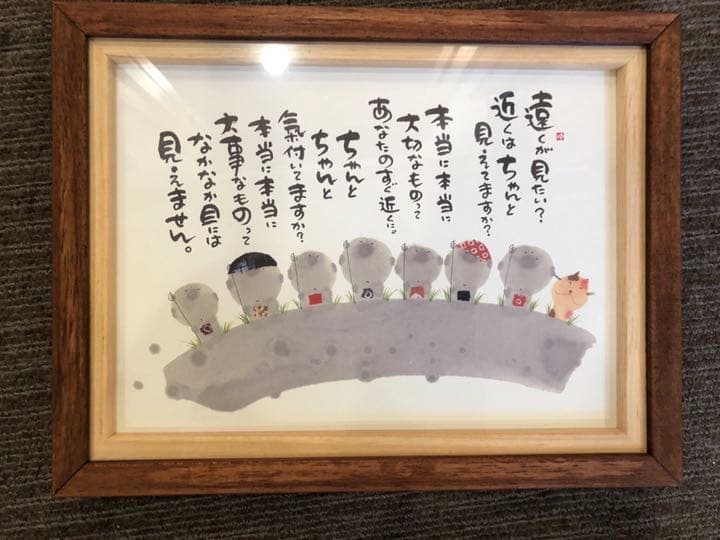 遠くが見たい？
近くはちゃんと
見えてますか？
本当に本当に
大切なものって
あなたのすぐ近くに。
ちゃんと
ちゃんと
氣付いてますか？
本当に本当に
大事なものって
なかなか目には
見えません。